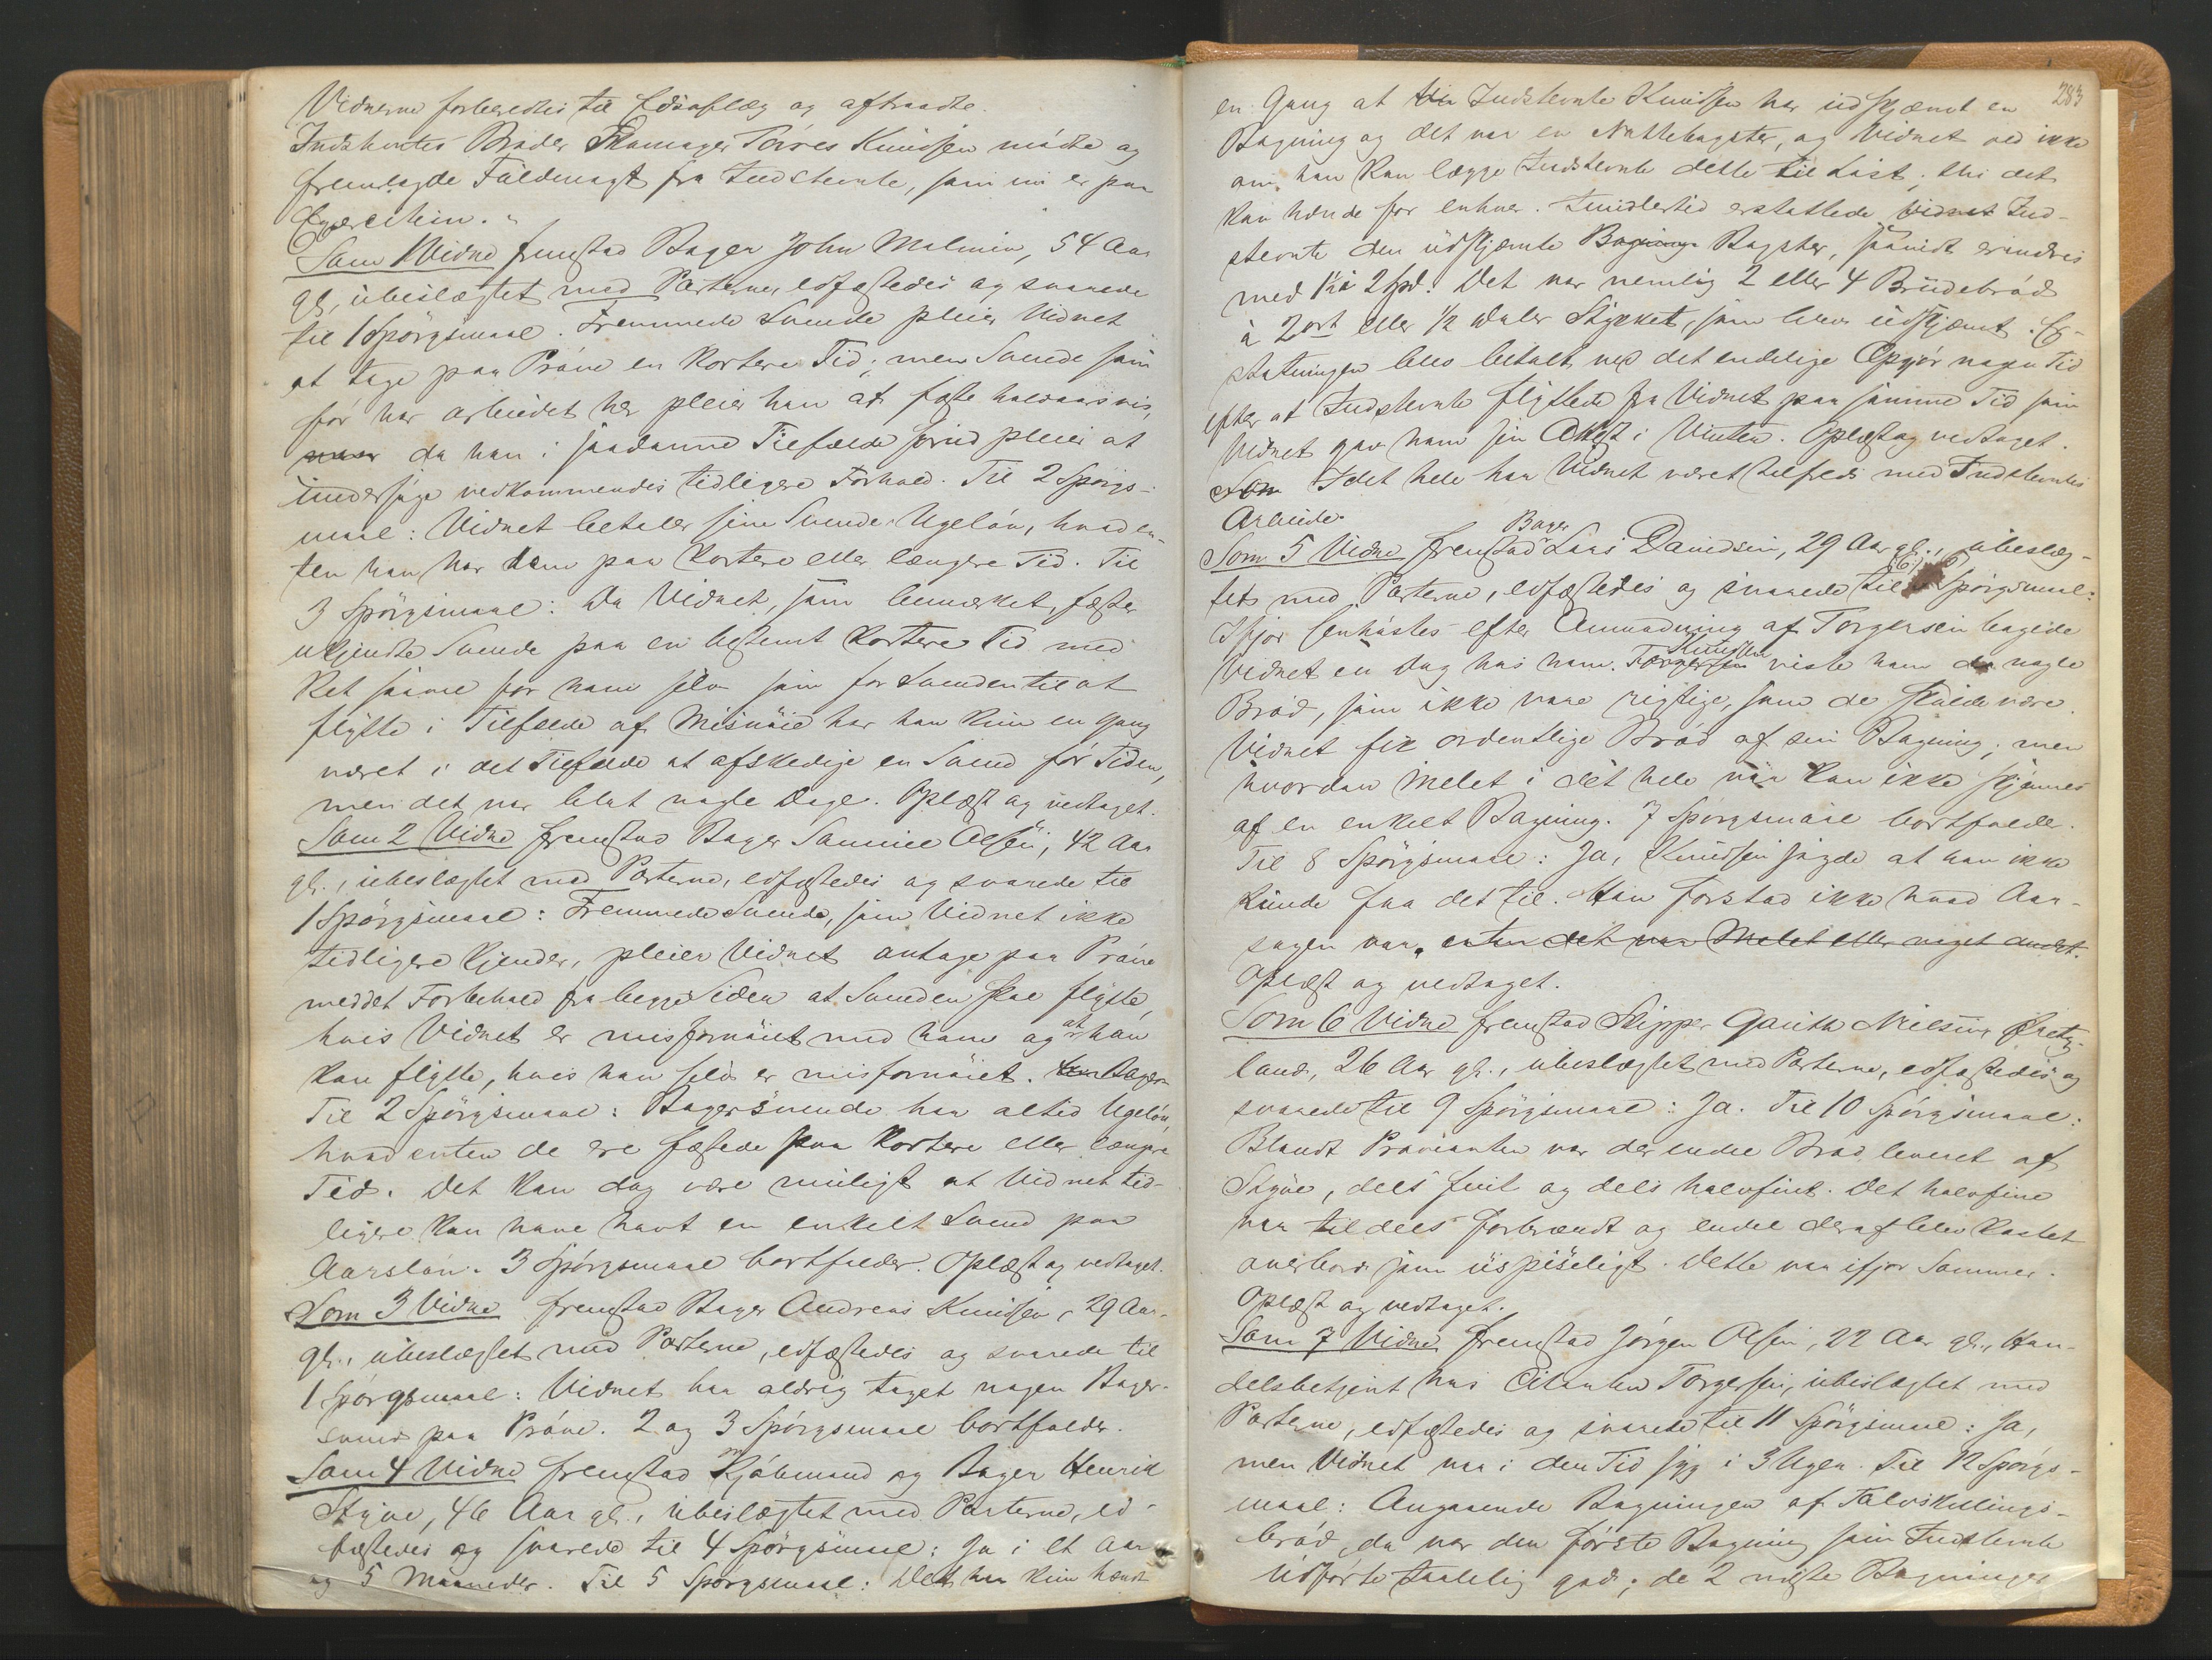 Vidnerne forberedtes til Edsaflæg og aftraadte.
Indstevntes Broder Skomager Tørres Knudsen mødte og
fremlagde Fuldmagt fra Indstevnte, som nu er paa
Exercitien.
Som 1 Vidne fremstod Bager John Malmin, 54 Aar
gl., ubeslægtet med Parterne, edfæstedes og svarede
til 1 Spørgsmaal. Fremmede Svende pleier Vidnet
at tage paa Prøve en kortere Tid; men Svende som
før har arbeidet her pleier han at fæste halvaarsvis,
da han i saadanne Tilfælde forud pleier at
undersøge vedkommendes tidligere Forhold. Til 2 Spørgs-
maal: Vidnet betaler sine Svende Ugeløn, hvad en-
ten han har dem paa kortere eller længere Tid. Til
3 Spørgsmaal: Da Vidnet, som bemærket, fæster
ukjendte Svende paa en bestemt kortere Tid med
Ret saavel for ham selv som for Svenden til at
flytte i Tilfælde af Misnøie har han kun en Gang
været i det Tilfælde at afskedige en Svend før Tiden,
men det var blot nogle Dage. Oplæst og vedtaget.
Som 2 Vidne fremstod Bager Samuel Olsen, 42 Aar
gl., ubeslægtet med Parterne, edfæstedes og svarede til
1 Spørgsmaal: Fremmede Svende, som Vidnet ikke
tidligere kjender, pleier Vidnet antage paa Prøve
med det Forbehold fra begge Sider at Svenden skal flytte,
hvis Vidnet er misfornøiet med ham og at han
kan flytte, hvis han selv er misfornøiet.
Til 2 Spørgsmaal: Bagersvende har altid Ugeløn,
hvad enten de ere fæstede paa kortere eller længere
Tid. Det kan dog være muligt at Vidnet tid-
ligere kan have havt en enkelt Svend paa
Aarsløn. 3 Spørgsmaal bortfalder. Oplæst og vedtaget.
Som 3 Vidne fremstod Bager Andreas Knudsen, 29 Aar
gl., ubeslægtet med Parterne, edfæstedes og svarede til
1 Spørgsmaal: Vidnet har aldrig taget nogen Bager-
svend paa Prøve. 2 og 3 Spørgsmaal bortfalder.
Som 4 Vidne fremstod Kjøbmand og Bager Henrik
Styve, 46 Aar gl., ubeslægtet med Parterne, ed-
fæstedes og svarede til 4 Spørgsmaal: Ja i et Aar
og 5 Maaneder. Til 5 Spørgsmaal: Det har kun hændt
283
en Gang at Indstevnte Knudsen har udskjæmt en
Bagning og det var en Nattebagster, og Vidnet ved ikke
om han kan lægge Indstevnte dette til Last, thi det
kan hænde for enhver. Imidlertid erstattede Vidnet Ind-
stevnte den udskjæmte Bagning Bagster, saavidt erindres
med 1½ à 2 Spd. Det var nemlig 2 eller 4 Brudebrød
à 2 ort eller ½ Daler Stykket, som blev udskjæmt. Er-
statningen blev betalt ved det endelige Opgjør nogen Tid
efter at Indstevnte flyttede fra Vidnet paa samme Tid som
Vidnet gav ham sin Attest i Vinter. Oplæst og vedtaget.
Som I det hele har Vidnet været tilfreds med Indstevntes
Arbeide.
Som 5 Vidne fremstod Bager Lars Danielsen, 29 Aar gl., ubeslæg-
tet med Parterne, edfæstedes og svarede til 6 Spørgsmaal:
Ifjor senhøstes efter Anmodning af Torgersen bagede
Vidnet en Dag hos ham. Torgersen Knudsen viste ham da nogle
Brød, som ikke vare rigtige, som de skulde være.
Vidnet fik ordentlige Brød af sin Bagning; men
hvordan Melet i det hele var kan ikke skjønnes
af en enkelt Bagning. 7 Spørgsmaal bortfalder.
Til 8 Spørgsmaal: Ja, Knudsen sagde at han ikke
kunde faa det til. Han forstod ikke hvad Aar-
sagen var, enten det var Melet eller noget andet.
Oplæst og vedtaget.
Som 6 Vidne fremstod Skipper Gauthe Nielsen
land, 26 Aar gl., ubeslægtet med Parterne, edfæstedes og
svarede til 9 Spørgsmaal: Ja. Til 10 Spørgsmaal:
Blandt Provianten var der endel Brød leveret af
Styve, dels fint og dels halvfint. Det halvfine
var tildels forbrændt og endel deraf blev kastet
overbord som uspiseligt. Dette var ifjor Sommer.
Oplæst og vedtaget.
Som 7 Vidne fremstod Jørgen Olsen, 22 Aar gl., Han-
delsbetjent hos Citanten Torgersen, ubeslægtet med
Parterne, edfæstedes og svarede til 11 Spørgsmaal: Ja,
men Vidnet var i den Tid syg i 3 Uger. Til 12 Spørgs-
maal: Angaaende Bagningen af Tolvskillings-
brød, da var den første Bagning som Indstevnte
udførte taalelig god; de 2 næste Bagninger